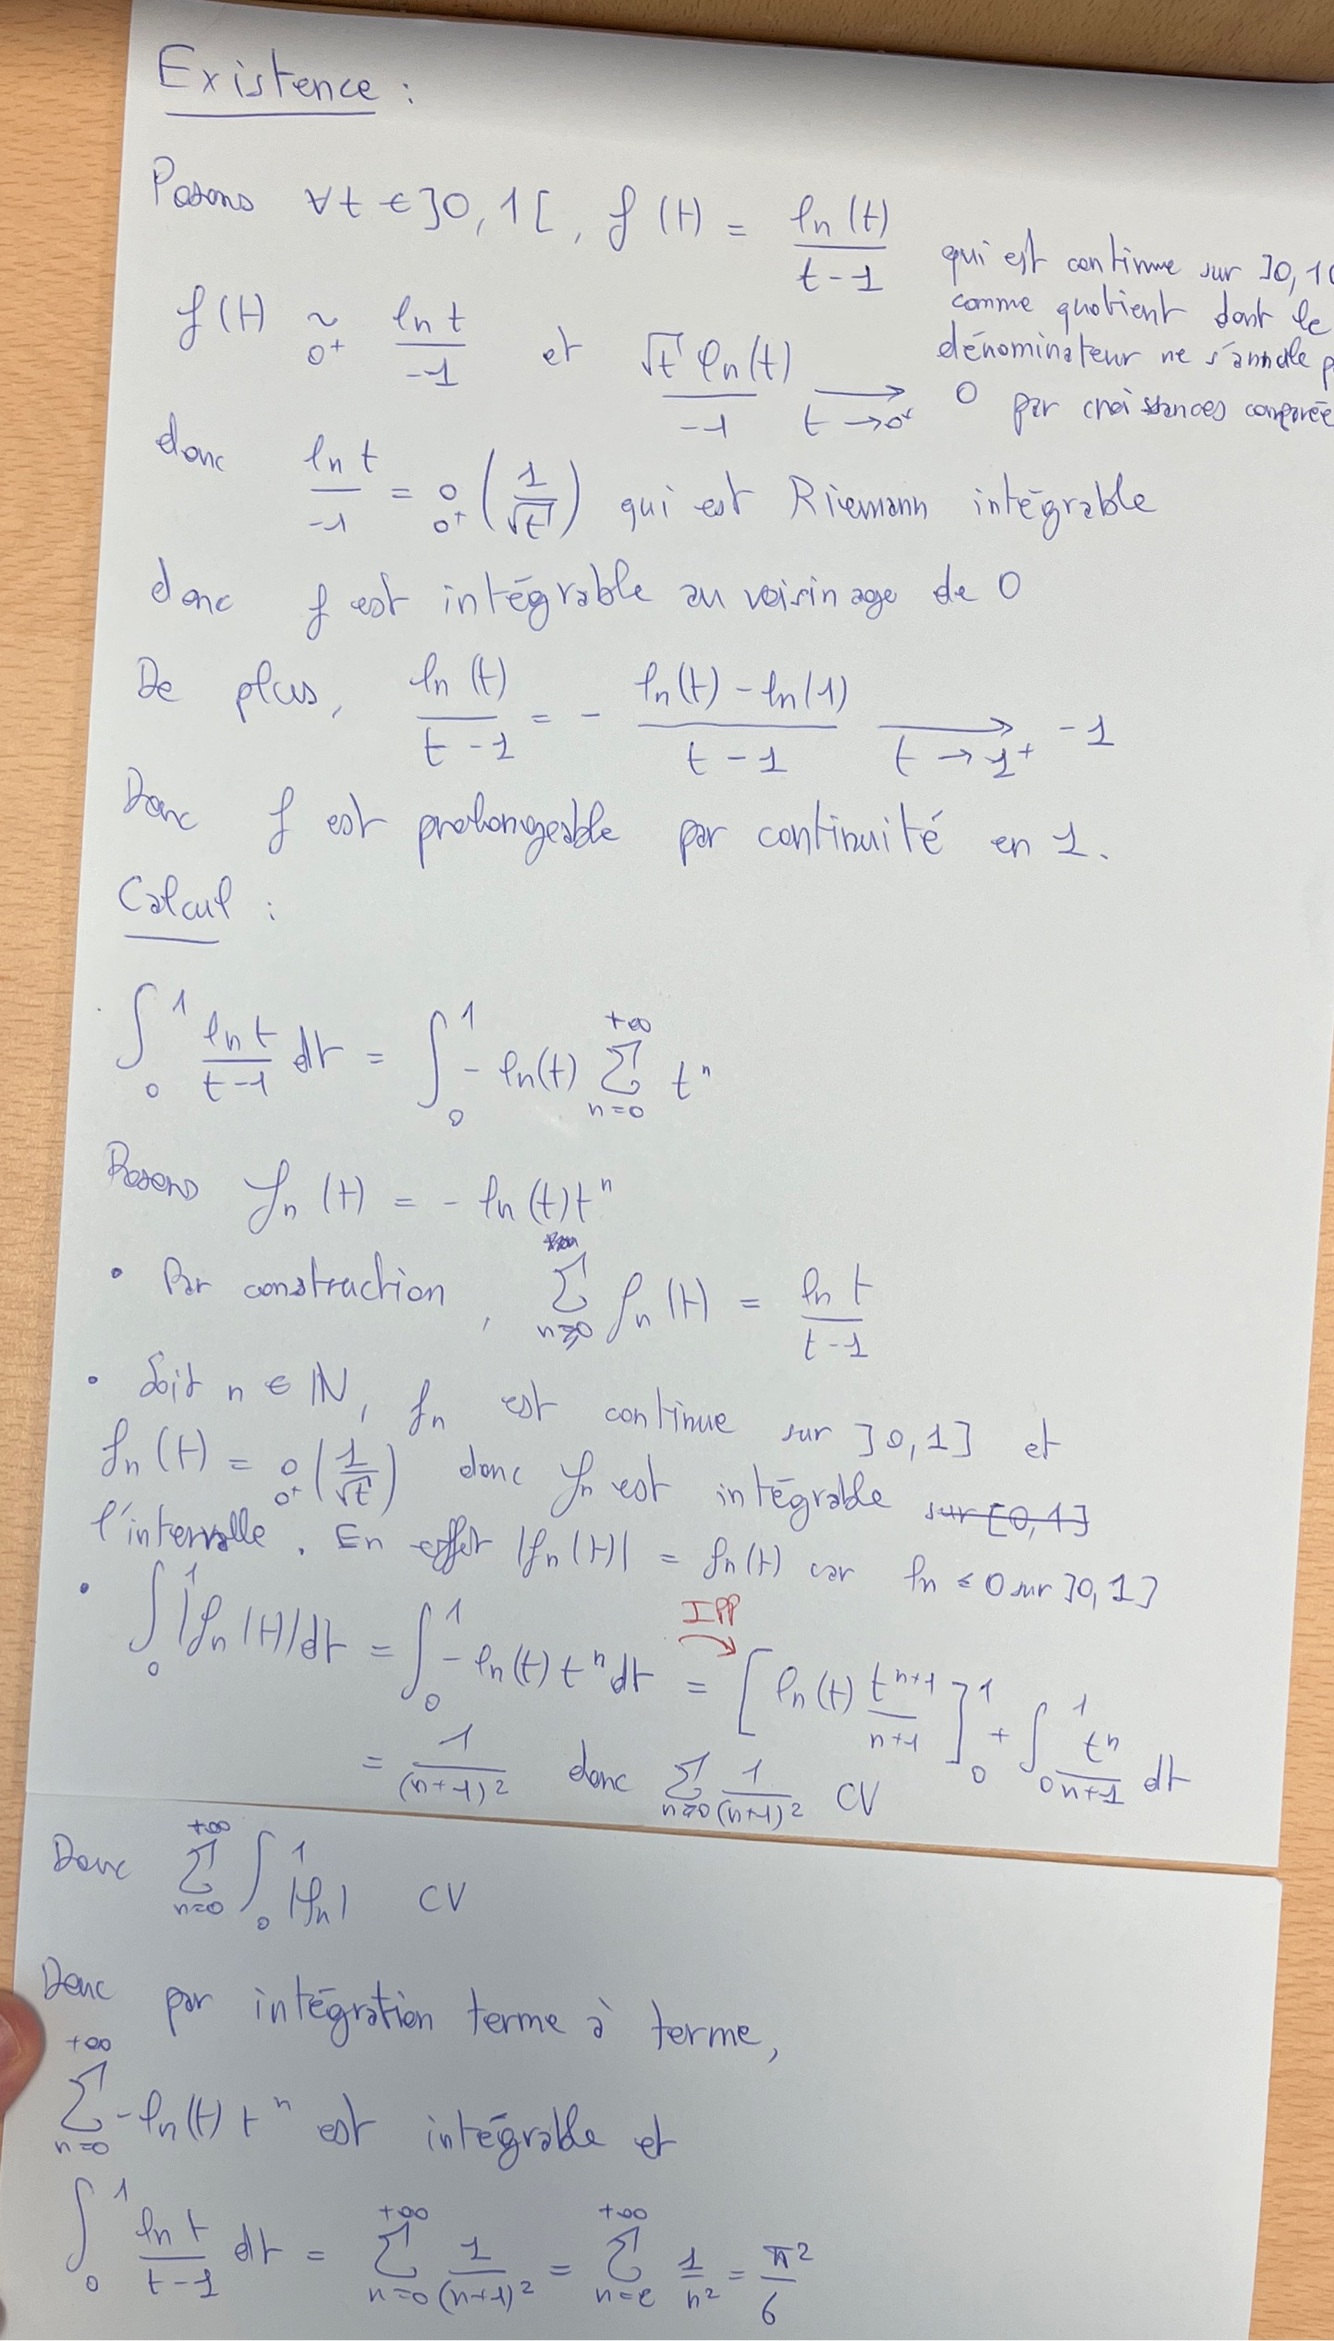 Existence :
Posons ∀t ∈ ]0,1[, f(t) = ln(t)/(t-1) qui est continue sur ]0,1[
comme quotient dont le
dénominateur ne s'annule p
f(t) ~_{0+} ln t/(-1) et √t ln(t)/(-1) →_{t→0+} 0 par croissances comparée
donc ln t/(-1) = o_{0+}(1/√t) qui est Riemann intégrable
donc f est intégrable au voisinage de 0
De plus, ln(t)/(t-1) = - (ln(t) - ln(1))/(t-1) →_{t→1+} -1
Donc f est prolongeable par continuité en 1.
Calcul :
∫_0^1 ln t/(t-1) dt = ∫_0^1 - ln(t) ∑_{n=0}^{+∞} t^n
Posons f_n(t) = - ln(t) t^n
• Par construction, ∑_{n≥0} f_n(t) = ln t/(t-1)
• Soit n ∈ ℕ, f_n est continue sur ]0,1] et
f_n(t) = o_{0+}(1/√t) donc f_n est intégrable sur [0,1]
l'intervalle. En effet |f_n(t)| = f_n(t) car ln ≤ 0 sur ]0,1]
IPP
• ∫_0^1 |f_n(t)| dt = ∫_0^1 - ln(t) t^n dt = [ln(t) t^{n+1}/(n+1)]_0^1 + ∫_0^1 t^n/(n+1) dt
= 1/(n+1)^2 donc ∑_{n≥0} 1/(n+1)^2 CV
Donc ∑_{n=0}^{+∞} ∫_0^1 |f_n| CV
Donc par intégration terme à terme,
∑_{n=0}^{+∞} - ln(t) t^n est intégrable et
∫_0^1 ln t/(t-1) dt = ∑_{n=0}^{+∞} 1/(n+1)^2 = ∑_{n=e}^{+∞} 1/n^2 = π^2/6